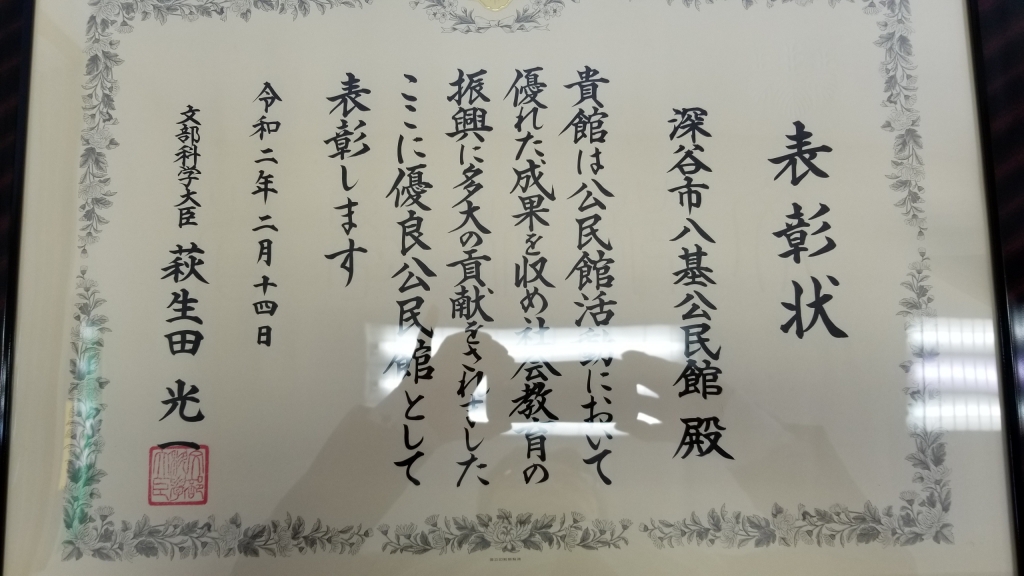 表彰状
深谷市八基公民館 殿
貴館は公民館活動において
優れた成果を収め社会教育の
振興に多大の貢献をされました
ここに優良公民館として
表彰します
令和二年二月十四日
文部科学大臣 萩生田 光一